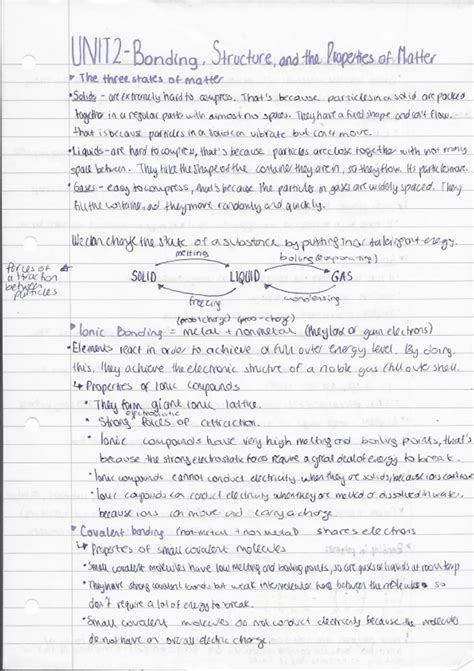 UNIT 2 - Bonding, Structure, and the Properties of Matter
The three states of matter
• Solids - are extremely hard to compress. That's because particles in a solid are packed
together in a regular pattern with almost no spaces. They have a fixed shape and can't flow.
that is because particles in a solid can vibrate but can't move.
• Liquids - are hard to compress, that's because particles are close together with not many
space between. They take the shape of the container they are in, so they flow. Its particles move.
• Gases - easy to compress, that's because the particles in gases are widely spaced. They
fill the container, and they move randomly and quickly.
We can change the state of a substance by putting in or taking out energy.
melting boiling (evaporating)
forces of attraction between particles
SOLID LIQUID GAS
freezing condensing
Ionic Bonding = metal + nonmetal (they lose or gain electrons)
• Elements react in order to achieve a full outer energy level. By doing
this, they achieve the electronic structre of a noble gas / full outer shell.
↳ Properties of Ionic coupounds
• They form giant ionic lattice.
• Strong electrostatic forces of attraction.
• Ionic compounds have very high melting and boiling points, that's
because the strong electrostatic forces require a great deal of energy to break.
• Ionic compounds cannot conduct electricity when they are solids, because ions can't move
• Ionic copounds can conduct electricity when they are melted or dissolved in water,
because ions can move and carry a charge.
Covalent bonding (non-metal + non metal) shares electrons
↳ Properties of small covalent molecules
• Small covalent molecules have low melting and boiling points, so are gases or liquids at room temp
• They have strong covalent bonds but weak intermolecular forces between the molecules so
don't require a lot of energy to break.
• Small covalent molecules do not conduct electricity because the molecules
do not have an overall electric charge.